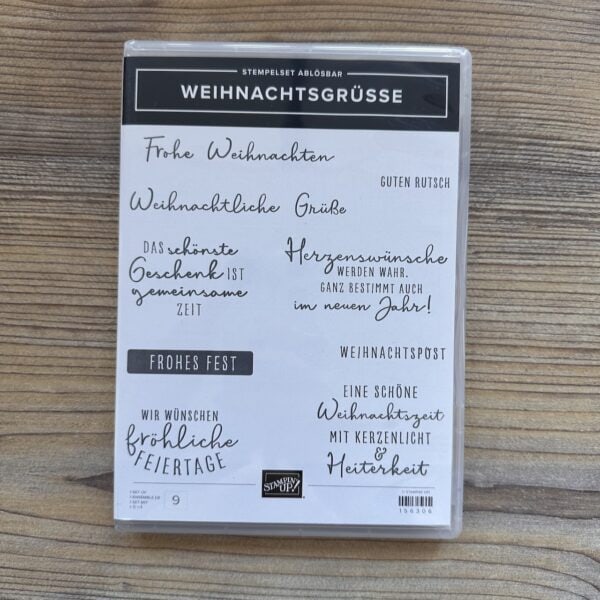 STEMPELSET ABLÖSBAR
WEIHNACHTSGRÜSSE
Frohe Weihnachten
GUTEN RUTSCH
Weihnachtliche Grüße
DAS schönste
Geschenk IST
gemeinsame
ZEIT
Herzenswünsche
WERDEN WAHR.
GANZ BESTIMMT AUCH
im neuen Jahr!
FROHES FEST
WEIHNACHTSPOST
WIR WÜNSCHEN
fröhliche
FEIERTAGE
EINE SCHÖNE
Weihnachtszeit
MIT KERZENLICHT
&
Heiterkeit
STAMPIN' UP!
9
156306